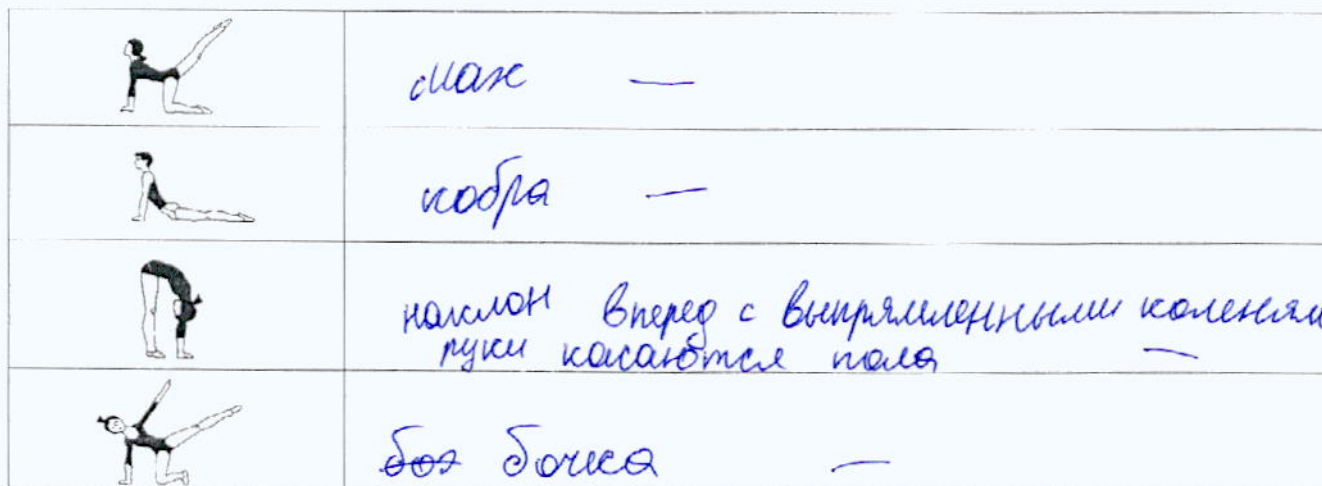 мах —
кобра —
наклон вперед с выпрямленными коленями
руки касаются пола —
бочка —